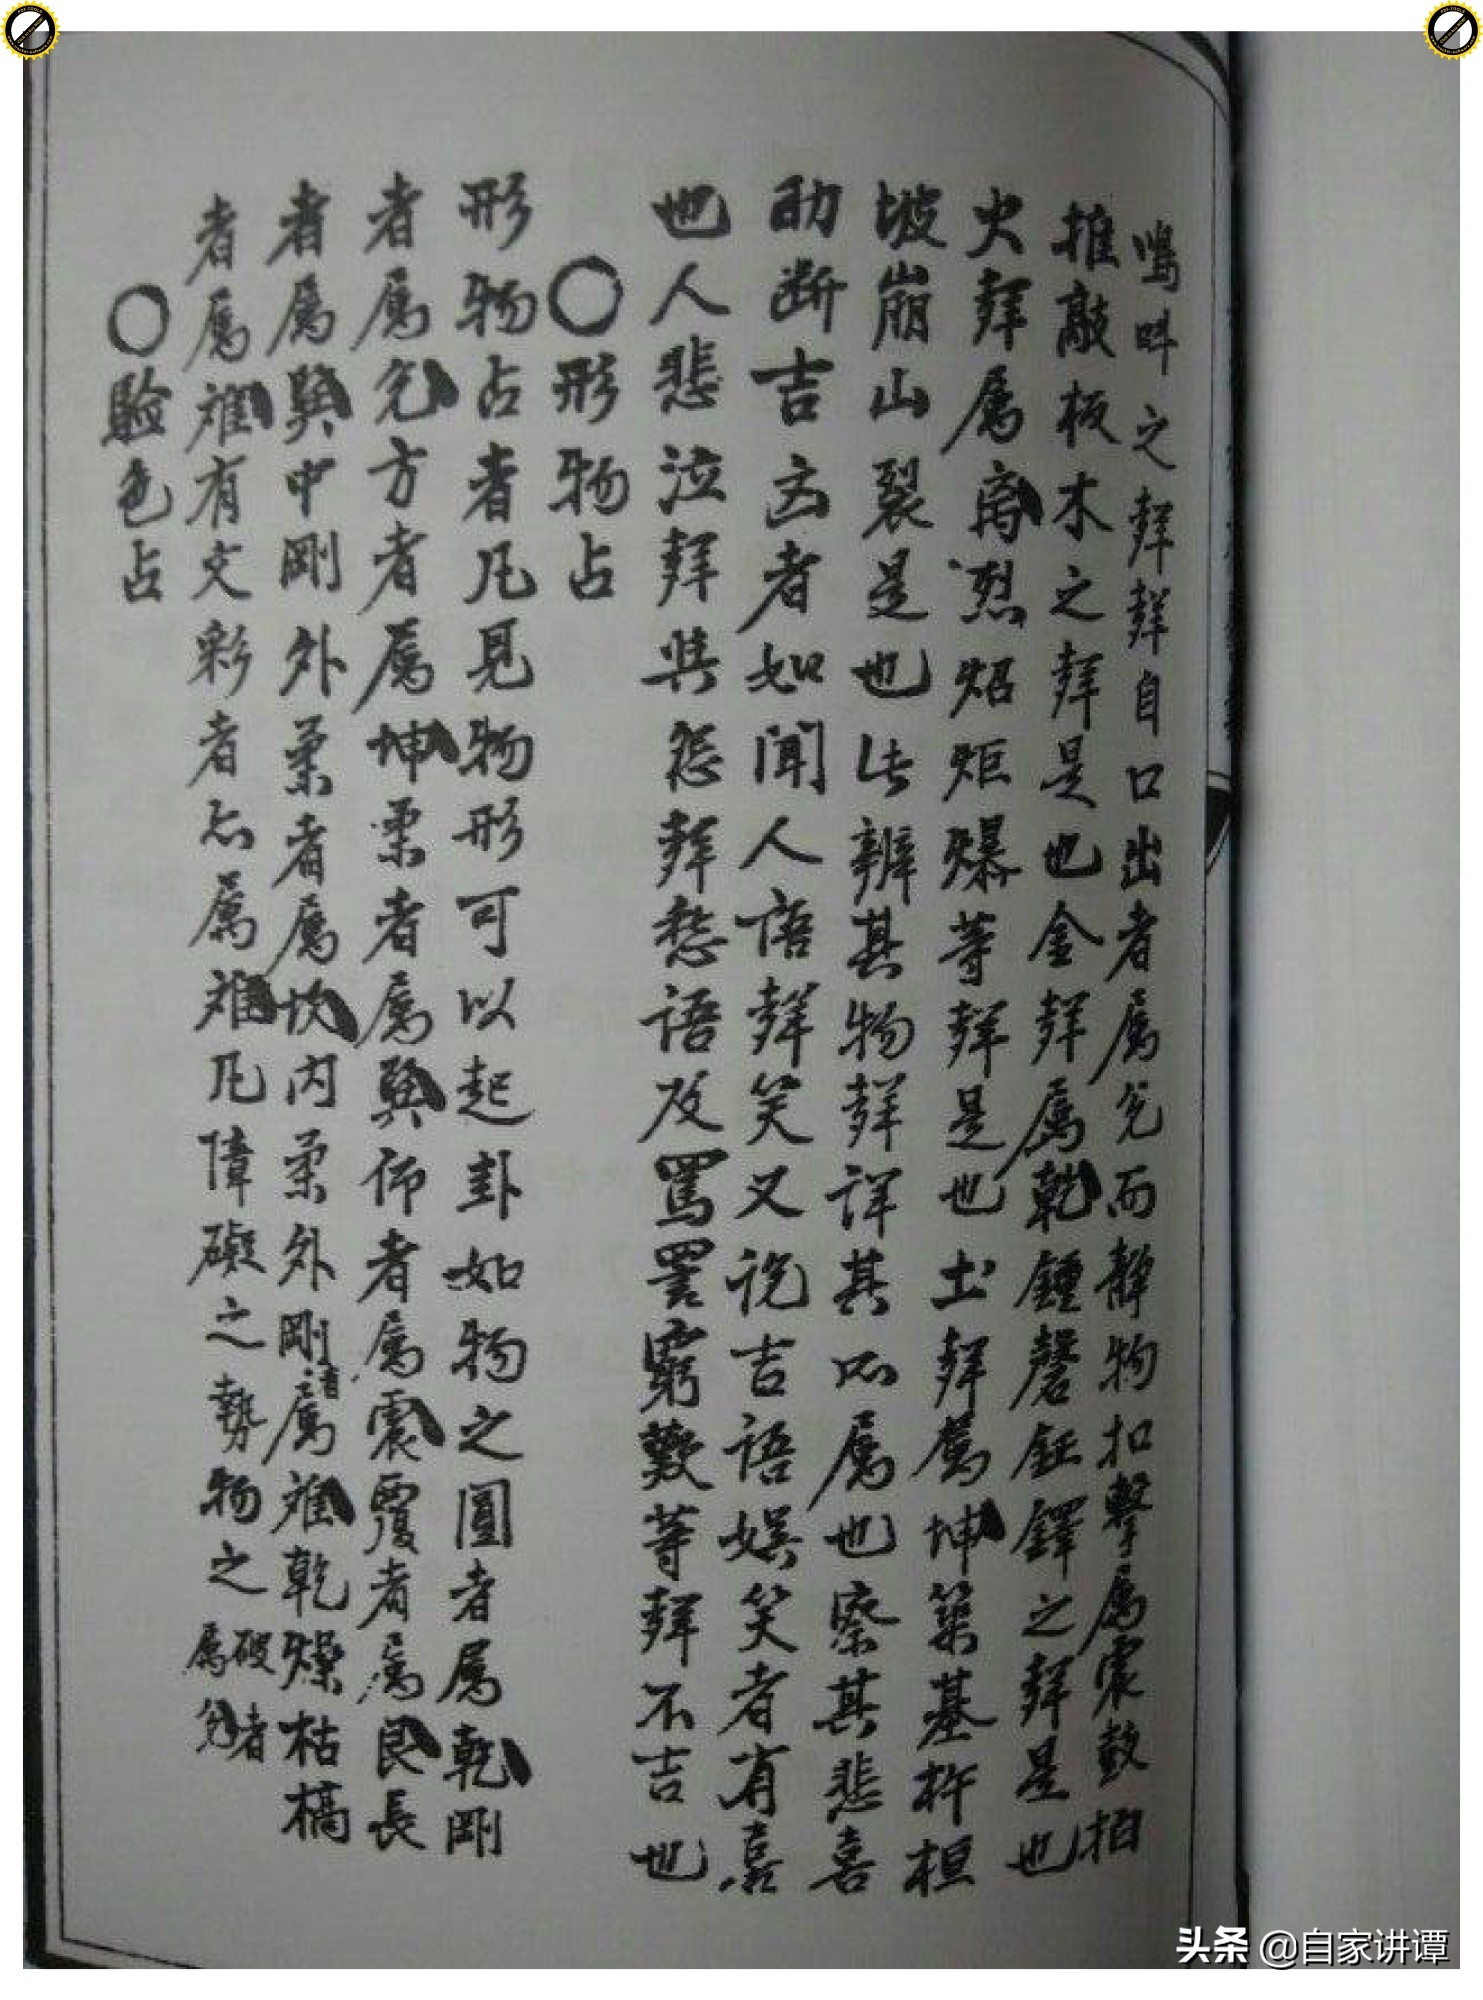 鳴叫之聲聲自口出者屬兌而靜物扣擊屬震鼓拍
推敲板木之聲是也金聲屬乾鍾磬鉦鐸之聲是也
火聲屬离烈焰炬爆等聲是也土聲屬坤築基杵桓
坡崩山裂是也此辨其物聲詳其所屬也察其悲喜
助断吉凶者如聞人語聲笑又說吉語娯笑者有喜
也人悲泣聲與怨聲愁語及罵詈窮歎等聲不吉也
○形物占
形物占者凡見物形可以起卦如物之圓者屬乾剛
者屬兌方者屬坤柔者屬巽仰者屬震覆者屬艮長
者屬巽中剛外柔者屬坎内柔外剛者屬难乾燥枯槁
者屬难有文彩者亦屬难凡障礙之勢物之破者屬兌
○驗色占
头条 @自家讲谭